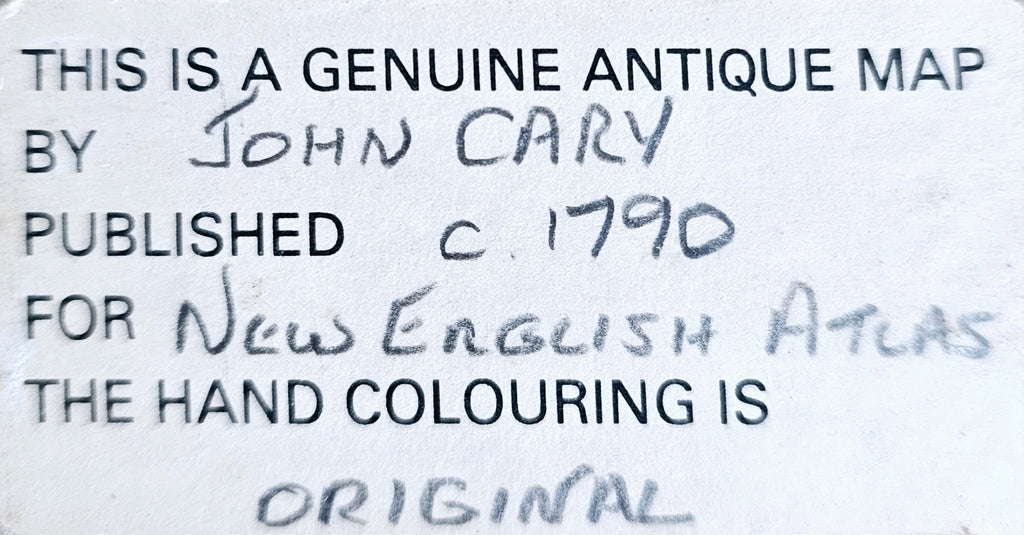 THIS IS A GENUINE ANTIQUE MAP
BY JOHN CARY
PUBLISHED c. 1790
FOR NEW ENGLISH ATLAS
THE HAND COLOURING IS
ORIGINAL